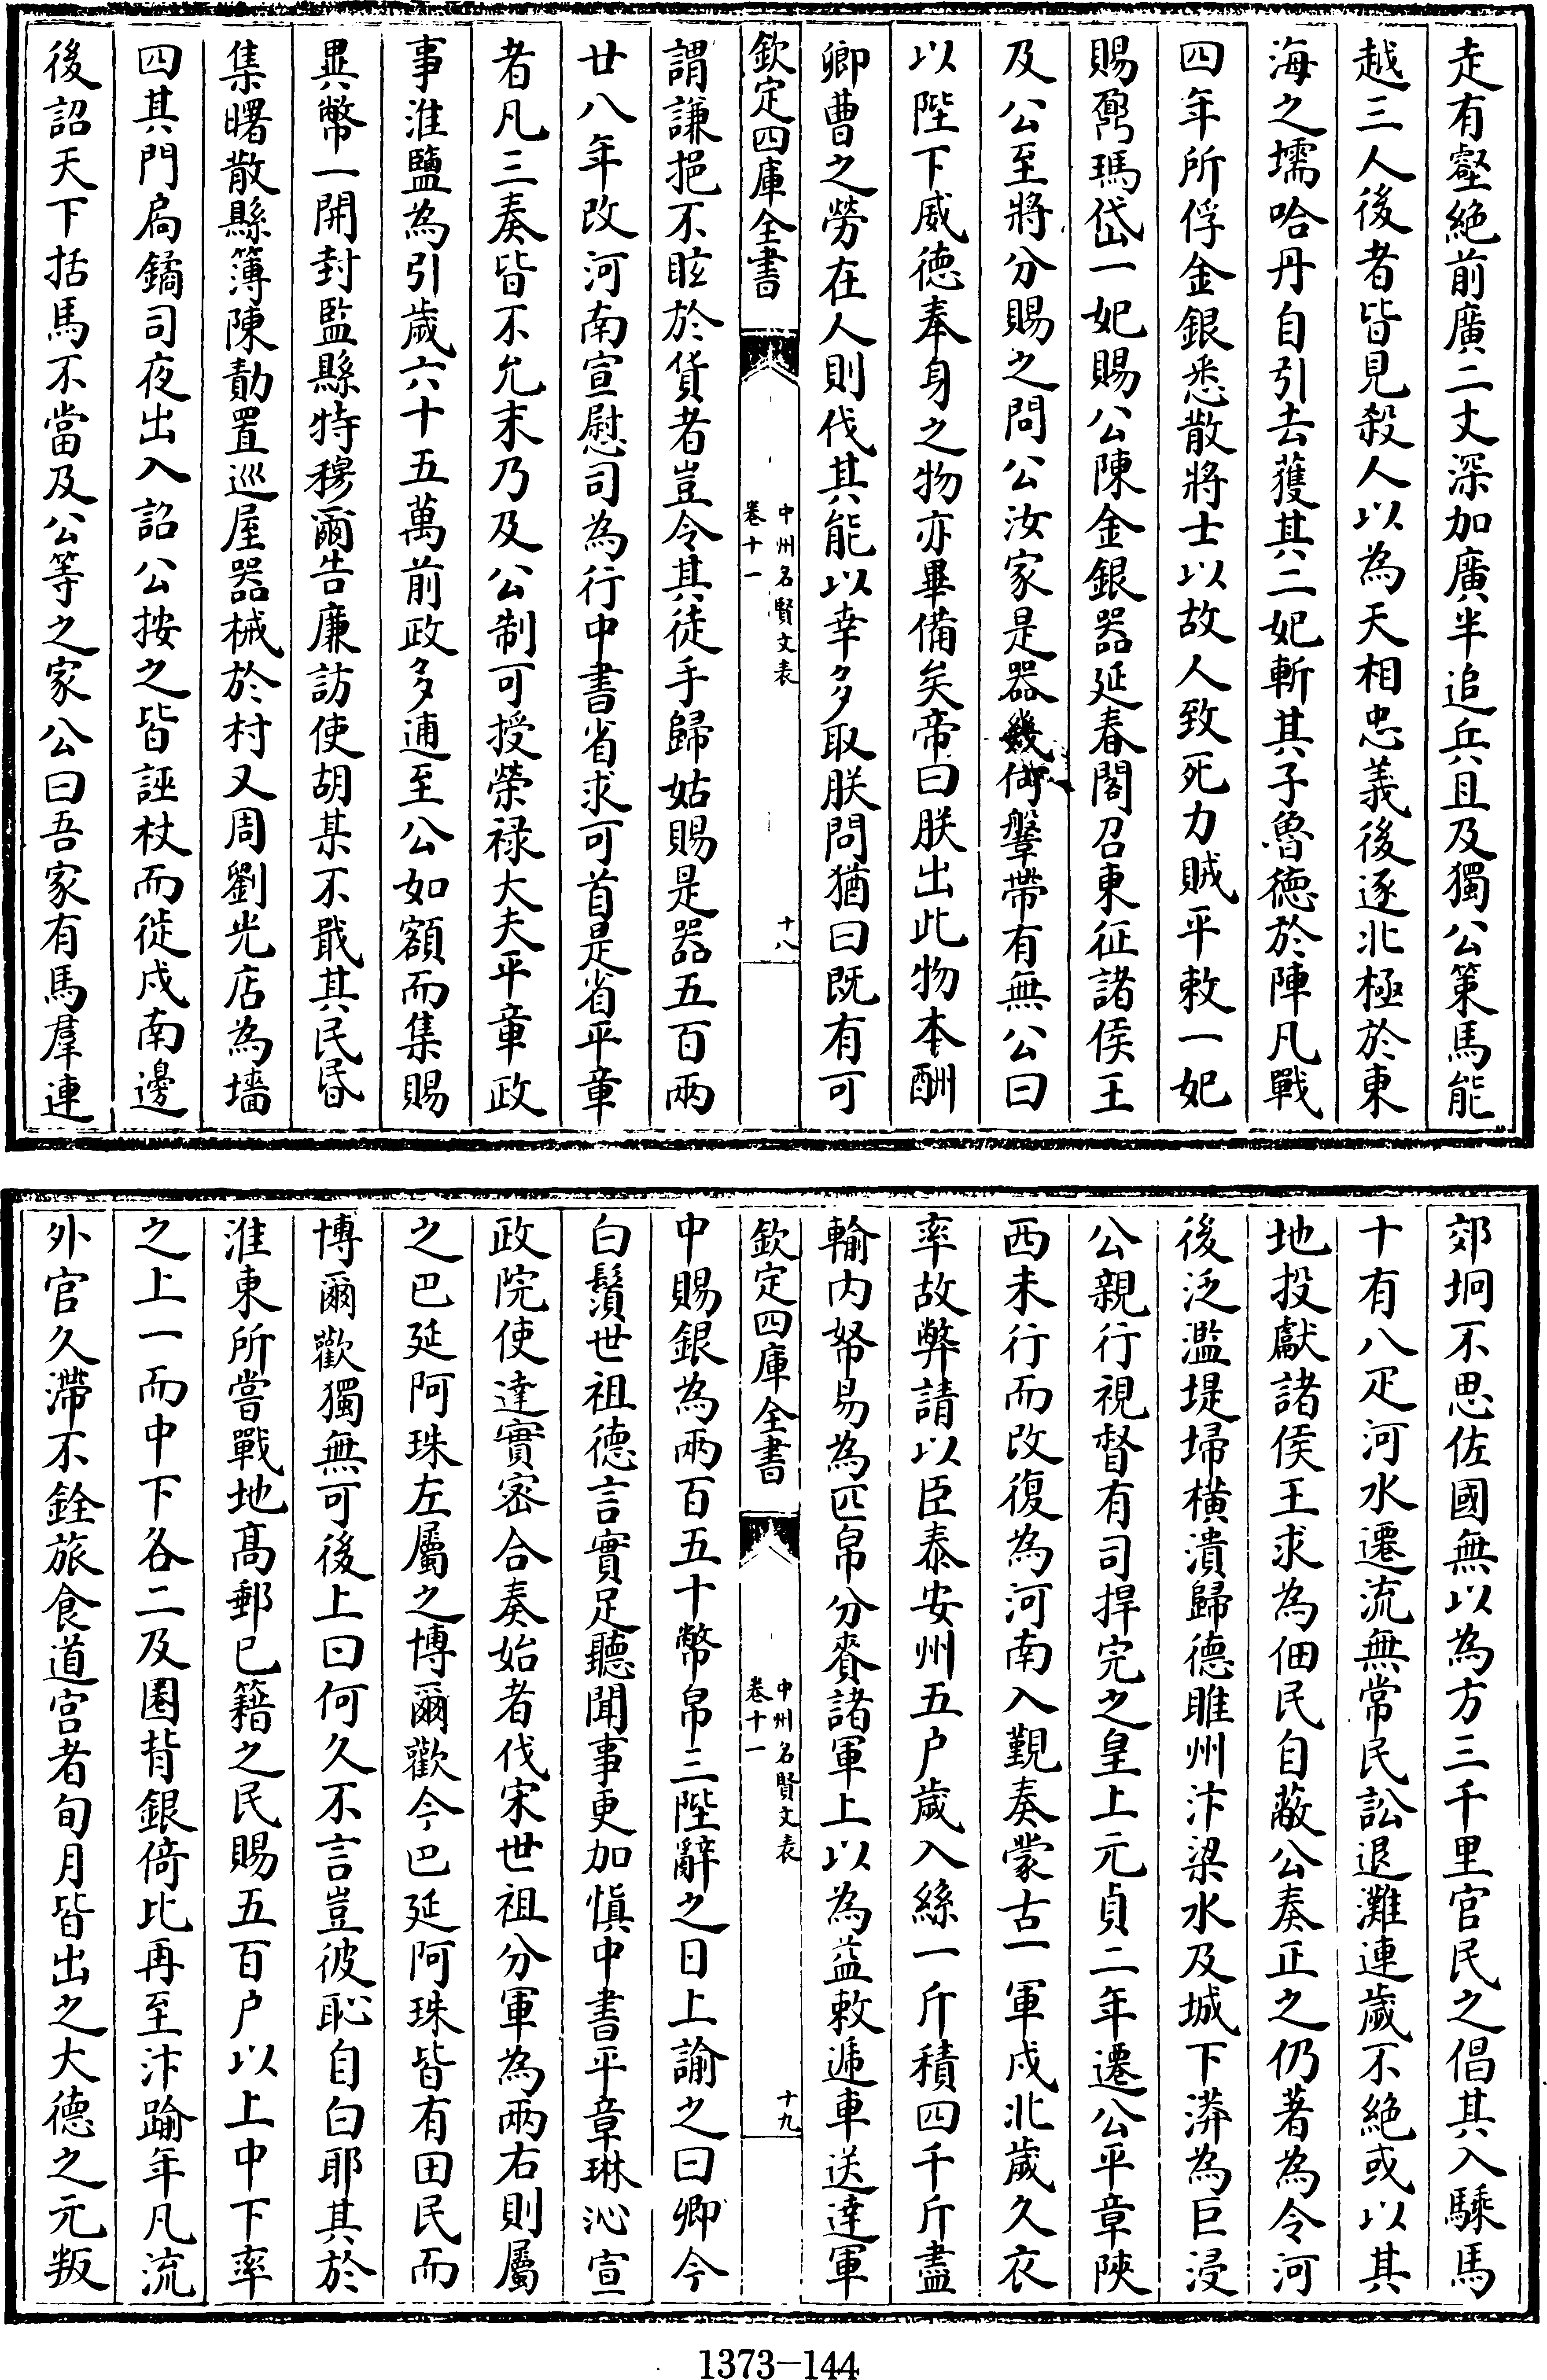 走有壑絶前廣二丈深加廣半追兵且及獨公策馬能
越三人後者皆見殺人以為天相忠義後逐北極於東
海之壖哈丹自引去獲其二妃斬其子魯德於陣凡戰
四年所俘金銀悉散將士以故人致死力賊平敕一妃
賜鄂瑪岱一妃賜公陳金銀器延春閣召東征諸侯王
及公至將分賜之問公汝家是器幾何鞶帶有無公曰
以陛下威德奉身之物亦畢備矣帝曰朕出此物本酬
卿曹之勞在人則伐其能以幸多取朕問猶曰既有可
欽定四庫全書
中州名賢文表
卷十一
十八
謂謙挹不眩於貨者豈令其徒手歸姑賜是器五百兩
廿八年改河南宣慰司為行中書省求可首是省平章
者凡三奏皆不允末乃及公制可授榮禄大夫平章政
事淮鹽為引歲六十五萬前政多逋至公如額而集賜
異幣一開封監縣特穆爾告廉訪使胡某不戢其民昏
集曙散縣簿陳勣置巡屋器械於村又周劉光店為墻
四其門扃鐍司夜出入詔公按之皆誣杖而徙戍南邊
後詔天下括馬不當及公等之家公曰吾家有馬羣連
郊坰不思佐國無以為方三千里官民之倡其入騬馬
十有八疋河水遷流無常民訟退灘連歲不絶或以其
地投獻諸侯王求為佃民自蔽公奏正之仍著為令河
後泛濫堤埽横潰歸德睢州汴梁水及城下漭為巨浸
公親行視督有司捍完之皇上元貞二年遷公平章陝
西未行而改復為河南入覲奏蒙古一軍戍北歲久衣
率故弊請以臣泰安州五户歲入絲一斤積四千斤盡
輸内帑易為匹帛分賚諸軍上以為益敕遞車送達軍
欽定四庫全書
中州名賢文表
卷十一
十九
中賜銀為兩百五十幣帛三陛辭之日上諭之曰卿今
白鬚世祖德言實足聽聞事更加慎中書平章琳沁宣
政院使達實密合奏始者伐宋世祖分軍為兩右則屬
之巴延阿珠左屬之博爾歡今巴延阿珠皆有田民而
博爾歡獨無可後上曰何久不言豈彼恥自白耶其於
淮東所嘗戰地高郵已籍之民賜五百户以上中下率
之上一而中下各二及圏背銀倚比再至汴踰年凡流
外官久滯不銓旅食道宫者旬月皆出之大德之元叛
1373-144